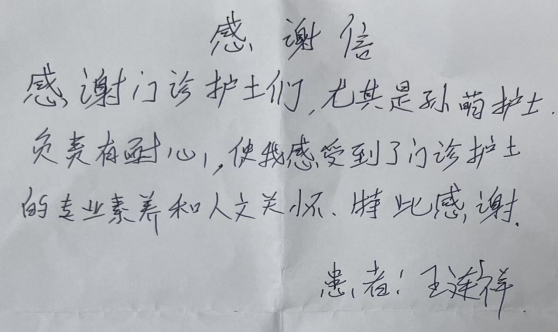 感谢信
感谢门诊护士们,尤其是孙萌护士.
负责有耐心,使我感受到了门诊护士
的专业素养和人文关怀、特此感谢.
患者:王莲祥